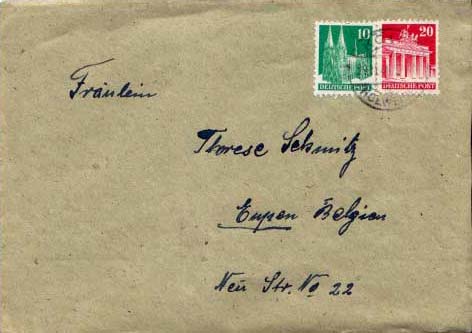 10 20
DEUTSCHE POST DEUTSCHE POST
Fräulein
Therese Schmitz
Eupen Belgien
Neu Str. No 22